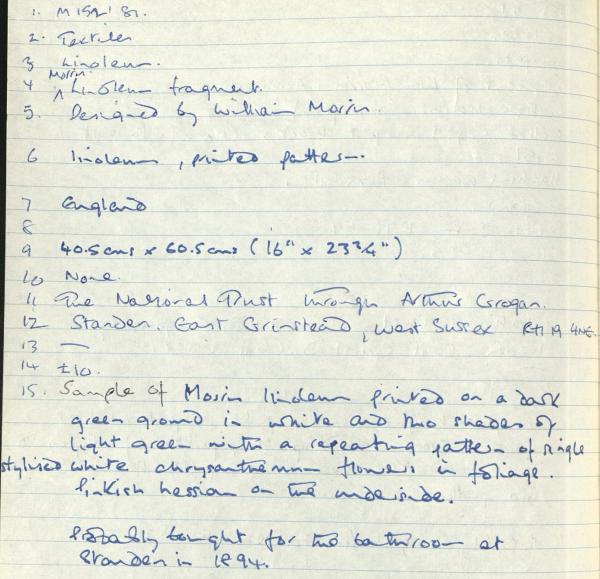 1. M152'81.
2. Textiles
3 Linoleum.
4 ^Morris Linoleum fragment.
5. Designed by William Morris.
6 linoleum, printed pattern.
7 England
8
9 40.5cms x 60.5cms (16" x 23¾")
10 None.
11 The National Trust through Arthur Grogan.
12 Standen. East Grinstead, West Sussex RH19 4NE.
13 —
14 £10.
15. Sample of Morris linoleum printed on a dark
green ground in white and two shades of
light green with a repeating pattern of single
stylised white chrysanthemum flowers in foliage.
Pinkish hessian on the underside.
Probably bought for the bathroom at
Standen in 1894.